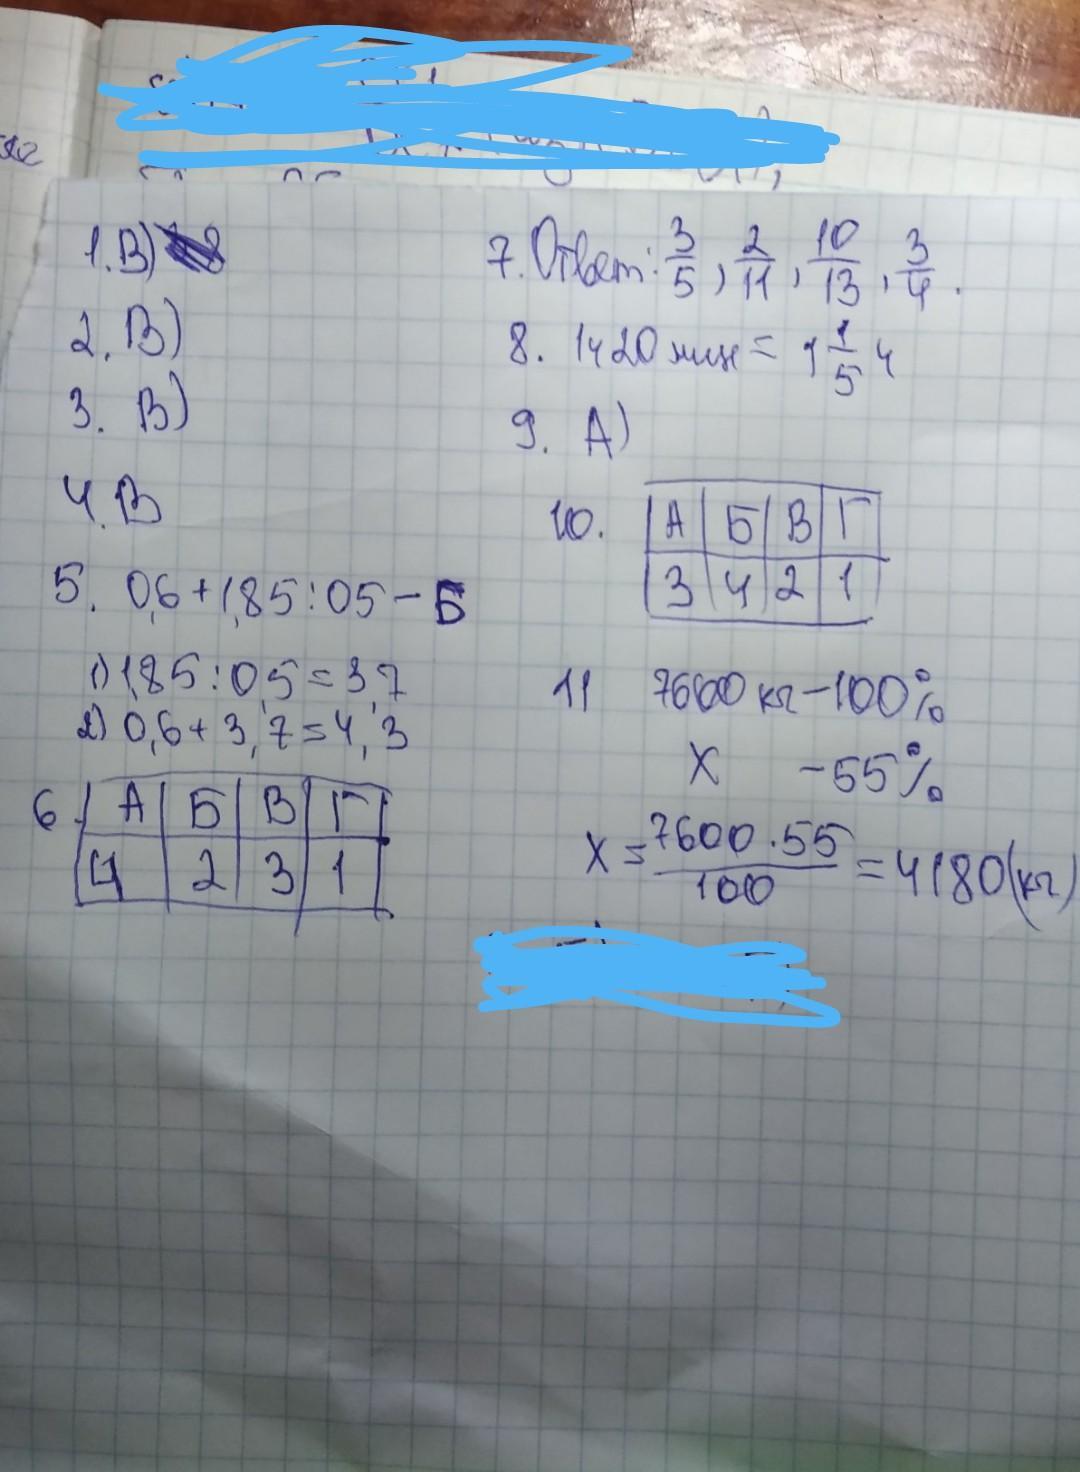 1. В)
2. В)
3. В)
4. В
5. 0,6+1,85:05-Б
1) 1,85:0,5=3,7
2) 0,6+3,7=4,3
6. А Б В Г
4 2 3 1
7. Ответ: 3/5, 2/11, 10/13, 3/4.
8. 1ч 20 мин = 1 1/5 ч
9. А)
10. А Б В Г
3 4 2 1
11 7600 кг - 100%
X - 55%
X = 7600 · 55 / 100 = 4180 (кг)